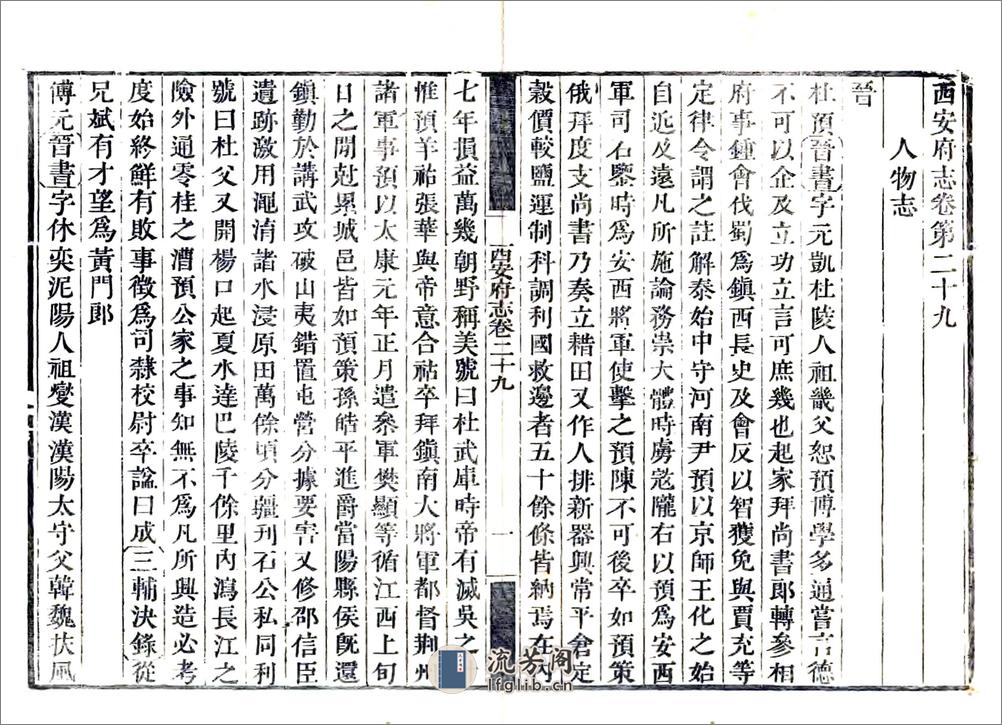 西安府志卷第二十九
人物志
晉
杜預晉書字元凱杜陵人祖畿父恕預博學多通嘗言德
不可以企及立功立言可庶幾也起家拜尚書郎轉參相
府事鍾會伐蜀爲鎮西長史及會反以智獲免與賈充等
定律令謂之註解泰始中守河南尹預以京師王化之始
自近及遠凡所施論務崇大體時虜寇隴右以預爲安西
軍司石鑒時爲安西將軍使擊之預陳不可後卒如預策
俄拜度支尚書乃奏立耤田又作人排新器興常平倉定
穀價較鹽運制科調利國救邊者五十餘條皆納焉在內
西安府志卷二十九
一
七年損益萬幾朝野稱美號曰杜武庫時帝有滅吳之
惟預羊祜張華與帝意合祜卒拜鎮南大將軍都督荆州
諸軍事預以太康元年正月遣叅軍樊顯等循江西上旬
日之閒尅累城邑皆如預策孫皓平進爵當陽縣侯旣還
鎮勤於講武攻破山夷錯置屯營分據要害又修邵信臣
遺跡激用滍淯諸水浸原田萬餘頃分疆刋石公私同利
號曰杜父又開楊口起夏水達巴陵千餘里內瀉長江之
險外通零桂之漕預公家之事知無不爲凡所興造必考
度始終鮮有敗事徵爲司隸校尉卒諡曰成三輔決錄從
兄斌有才望爲黃門郎
傅元晉書字休奕泥陽人祖燮漢漢陽太守父韓魏扶風
流芳阁
lfglib.cn